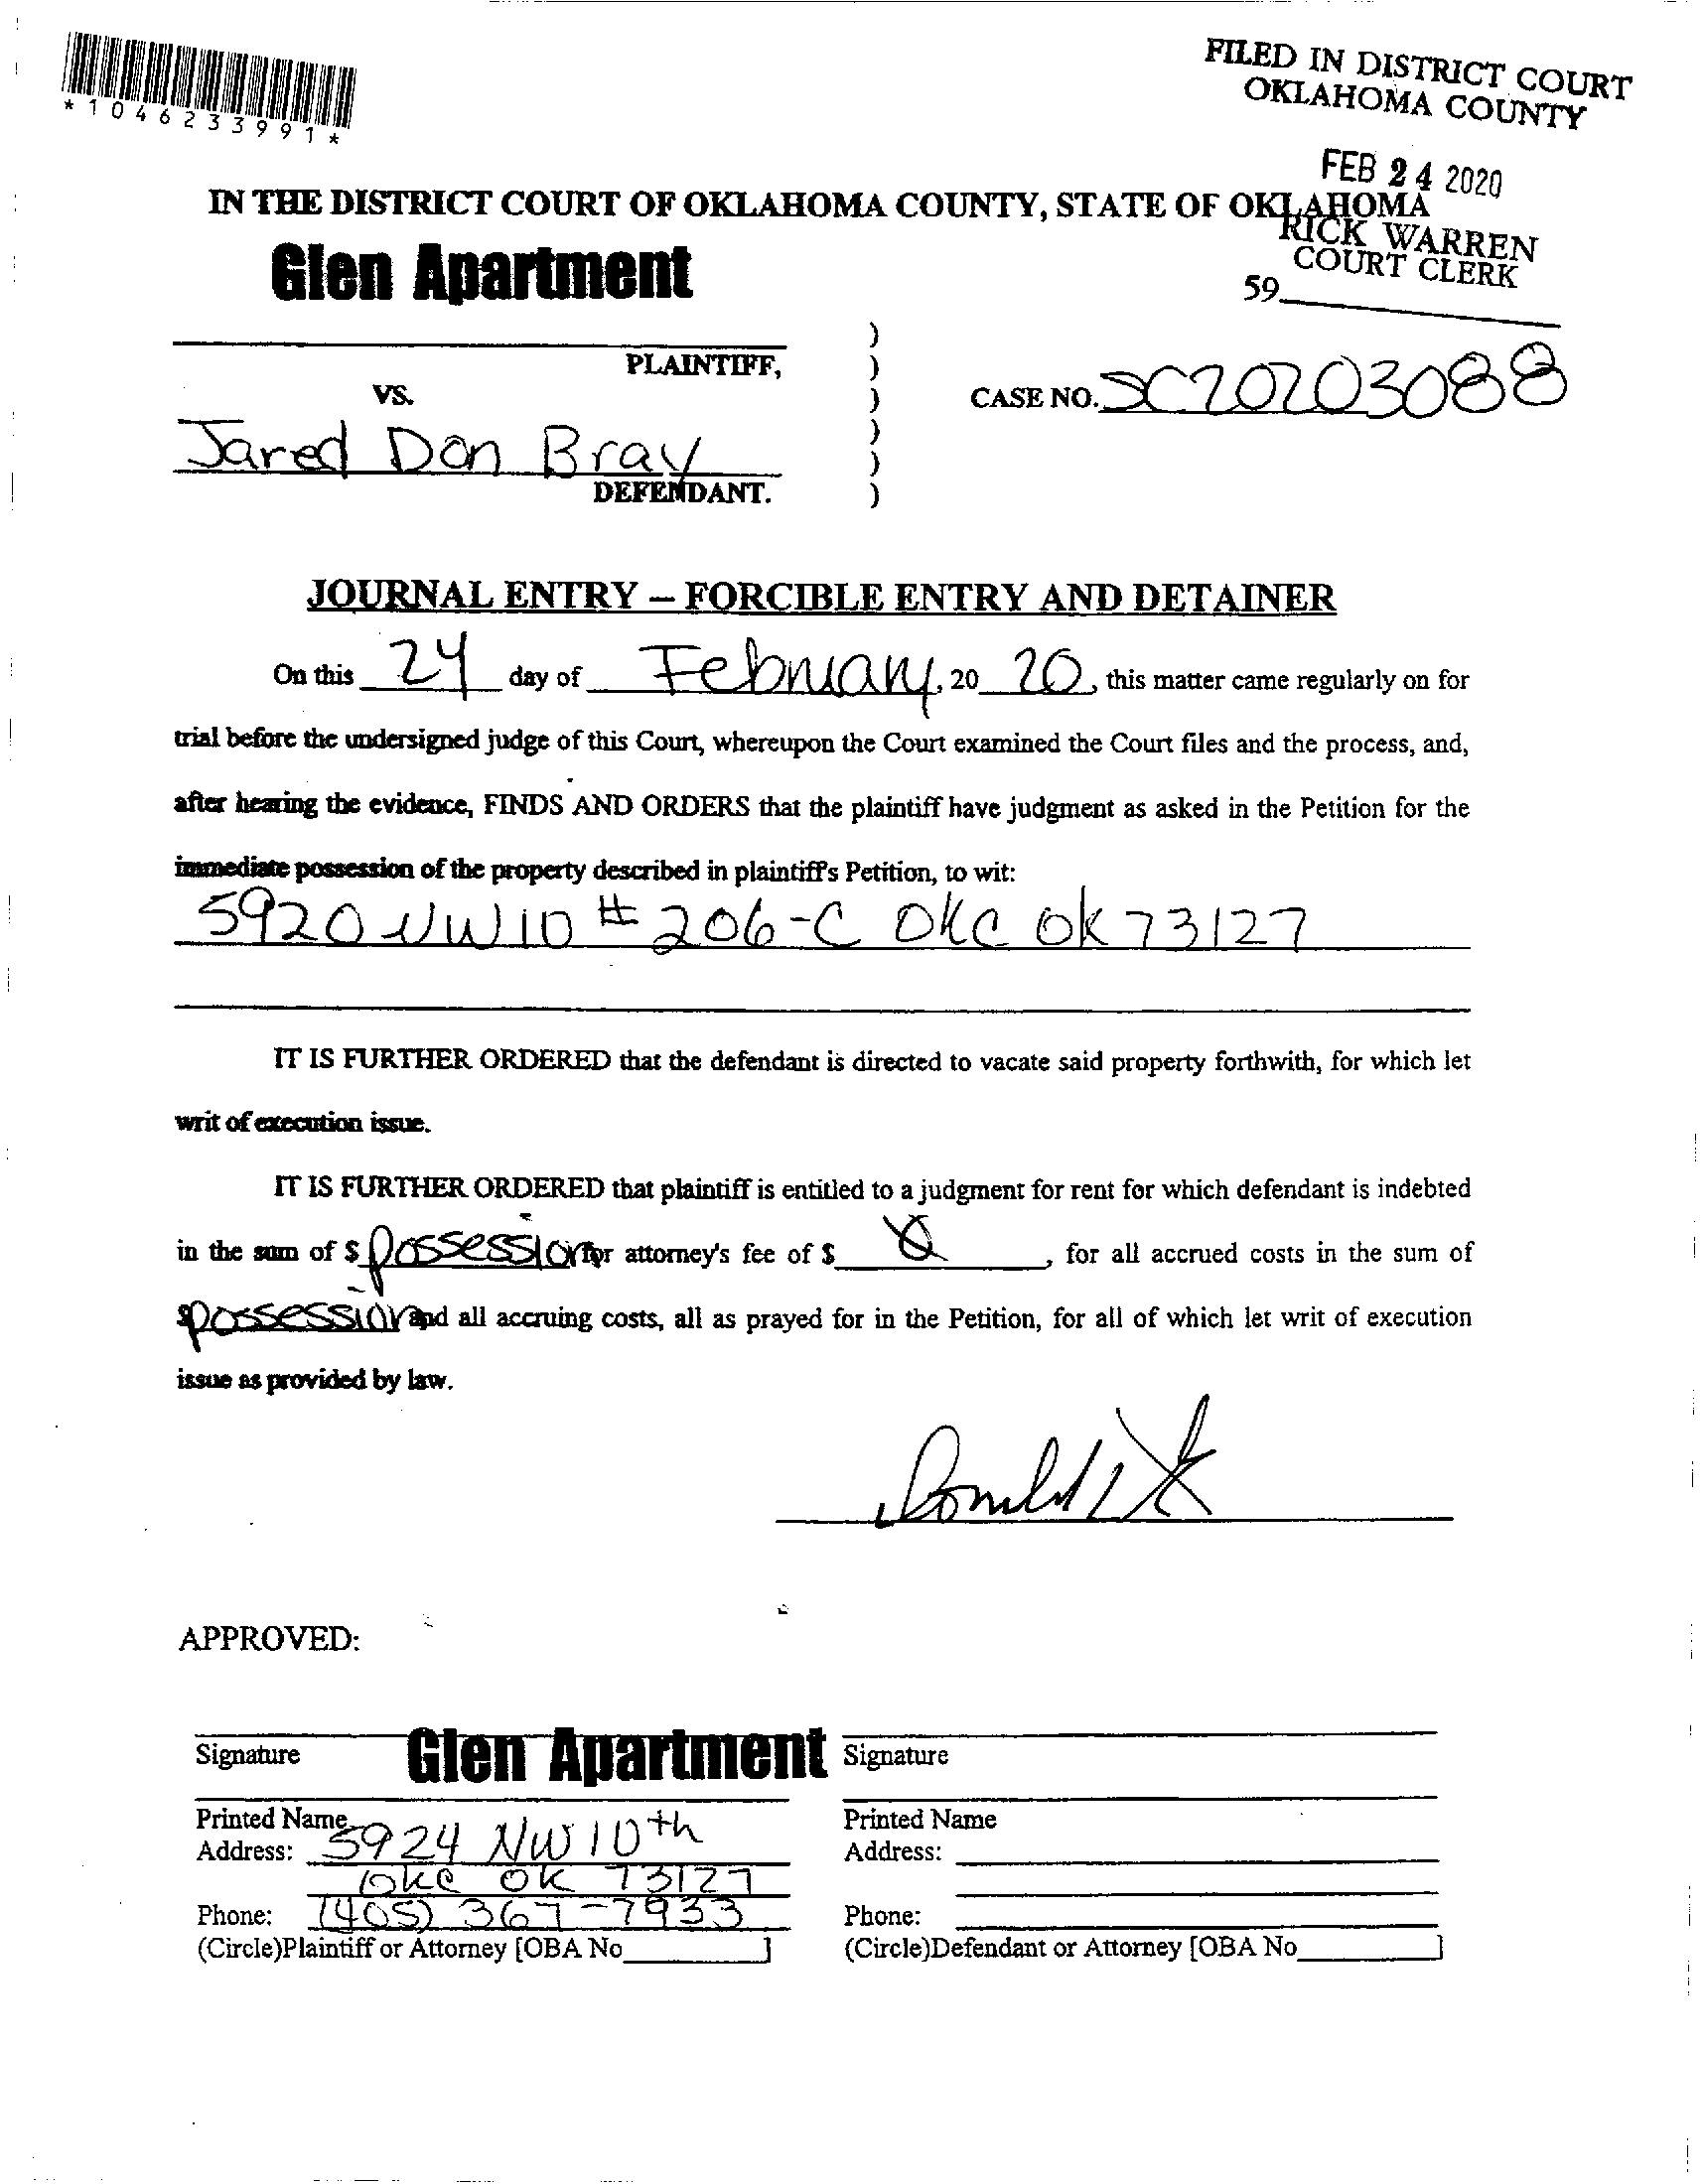 FILED IN DISTRICT COURT
OKLAHOMA COUNTY
*1046233991*
FEB 24 2020
IN THE DISTRICT COURT OF OKLAHOMA COUNTY, STATE OF OKLAHOMA
RICK WARREN
COURT CLERK
59
Glen Apartment
)
PLAINTIFF, )
VS. ) CASE NO. SC20203088
Jared Don Bray )
)
DEFENDANT. )
JOURNAL ENTRY – FORCIBLE ENTRY AND DETAINER
On this 24 day of February, 20 20, this matter came regularly on for
trial before the undersigned judge of this Court, whereupon the Court examined the Court files and the process, and,
after hearing the evidence, FINDS AND ORDERS that the plaintiff have judgment as asked in the Petition for the
immediate possession of the property described in plaintiff's Petition, to wit:
5920 NW 10 # 206-C OKC OK 73127
IT IS FURTHER ORDERED that the defendant is directed to vacate said property forthwith, for which let
writ of execution issue.
IT IS FURTHER ORDERED that plaintiff is entitled to a judgment for rent for which defendant is indebted
in the sum of $ possession for attorney's fee of $ , for all accrued costs in the sum of
$possession and all accruing costs, all as prayed for in the Petition, for all of which let writ of execution
issue as provided by law.
APPROVED:
Signature Glen Apartment Signature
Printed Name Printed Name
Address: 5924 NW 10th Address:
OKC OK 73127
Phone: (405) 367-7933 Phone:
(Circle)Plaintiff or Attorney [OBA No ] (Circle)Defendant or Attorney [OBA No ]